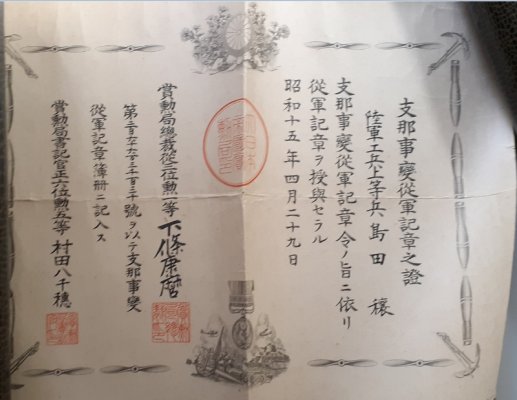 支那事變從軍記章之證
陸軍工兵上等兵島田穰
支那事變從軍記章令ノ旨ニ依リ
從軍記章ヲ授與セラル
昭和十五年四月二十九日
賞勲局總裁從三位勲一等下條康麿
號ヲ以テ支那事變
從軍記章簿冊ニ記入ス
賞勲局書記官正六位勲五等村田八千穗